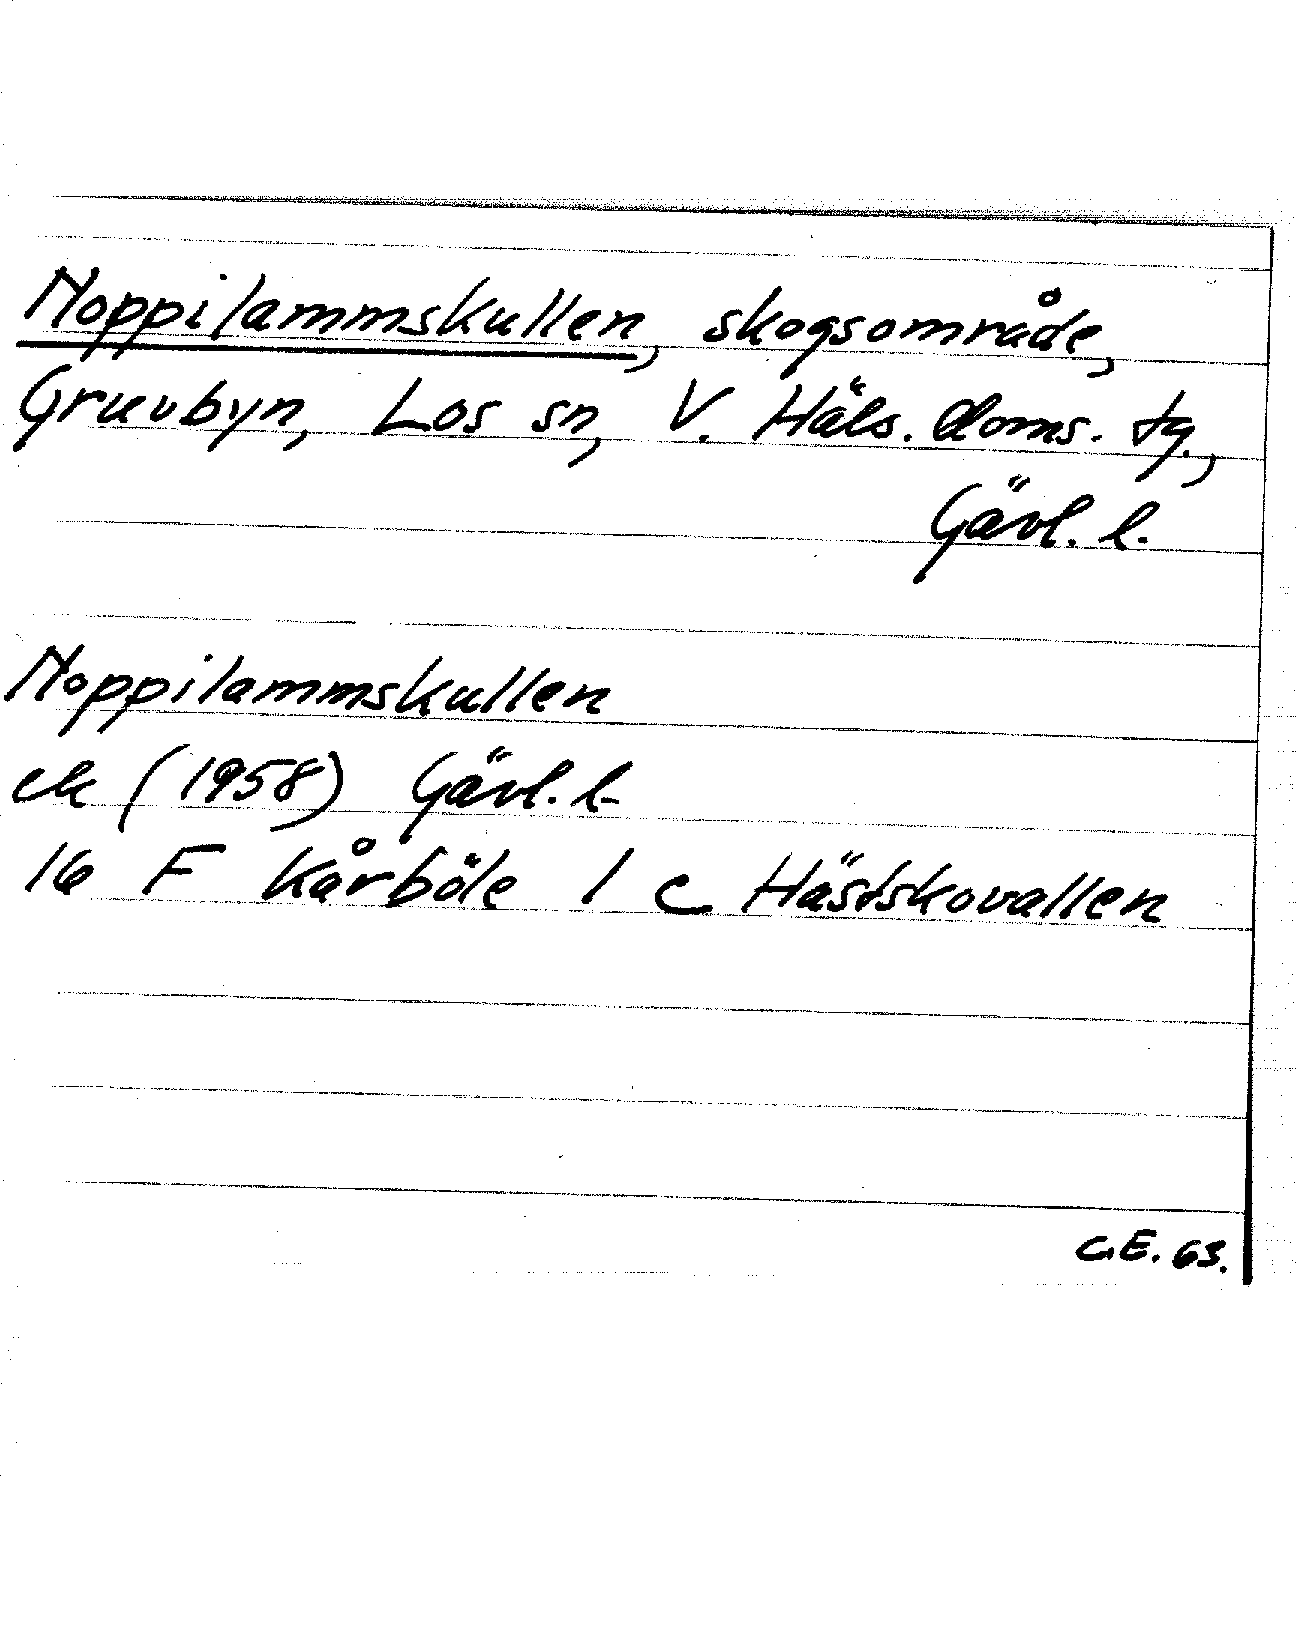 Noppilammskullen, skogsområde,
Gruvbyn, Los sn, V. Häls. doms. tg.,
Gävl. l.
Noppilammskullen
ek (1958) Gävl. l.
16 F Kårböle 1 c Hästskovallen
C.E. 63.